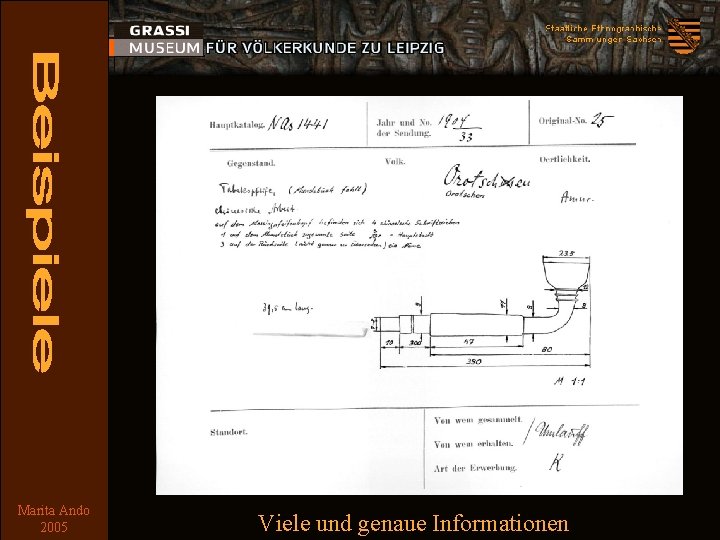 GRASSI
MUSEUM FÜR VÖLKERKUNDE ZU LEIPZIG
Staatliche Ethnographische
Sammlungen Sachsen
Beispiele
Hauptkatalog. NAs 1441
Jahr und No. der Sendung. 1904/33
Original-No. 25
Gegenstand.
Volk.
Oertlichkeit.
Tabakspfeife, (Mundstück fehlt)
Orotschonen
Orotschen
Amur.
chinesische Arbeit
auf dem Messingpfeifenkopf befinden sich 4 chinesische Schriftzeichen
1 auf dem Mundstück zugewandte Seite = Hauptstadt
3 auf der Rückseite (nicht genau zu ) ein Name
39,5 cm lang.
23.5
8
8
10
300
47
60
380
M 1:1
Standort.
Von wem gesammelt.
Von wem erhalten.
Umlauff
Art der Erwerbung. K
Marita Ando
2005
Viele und genaue Informationen